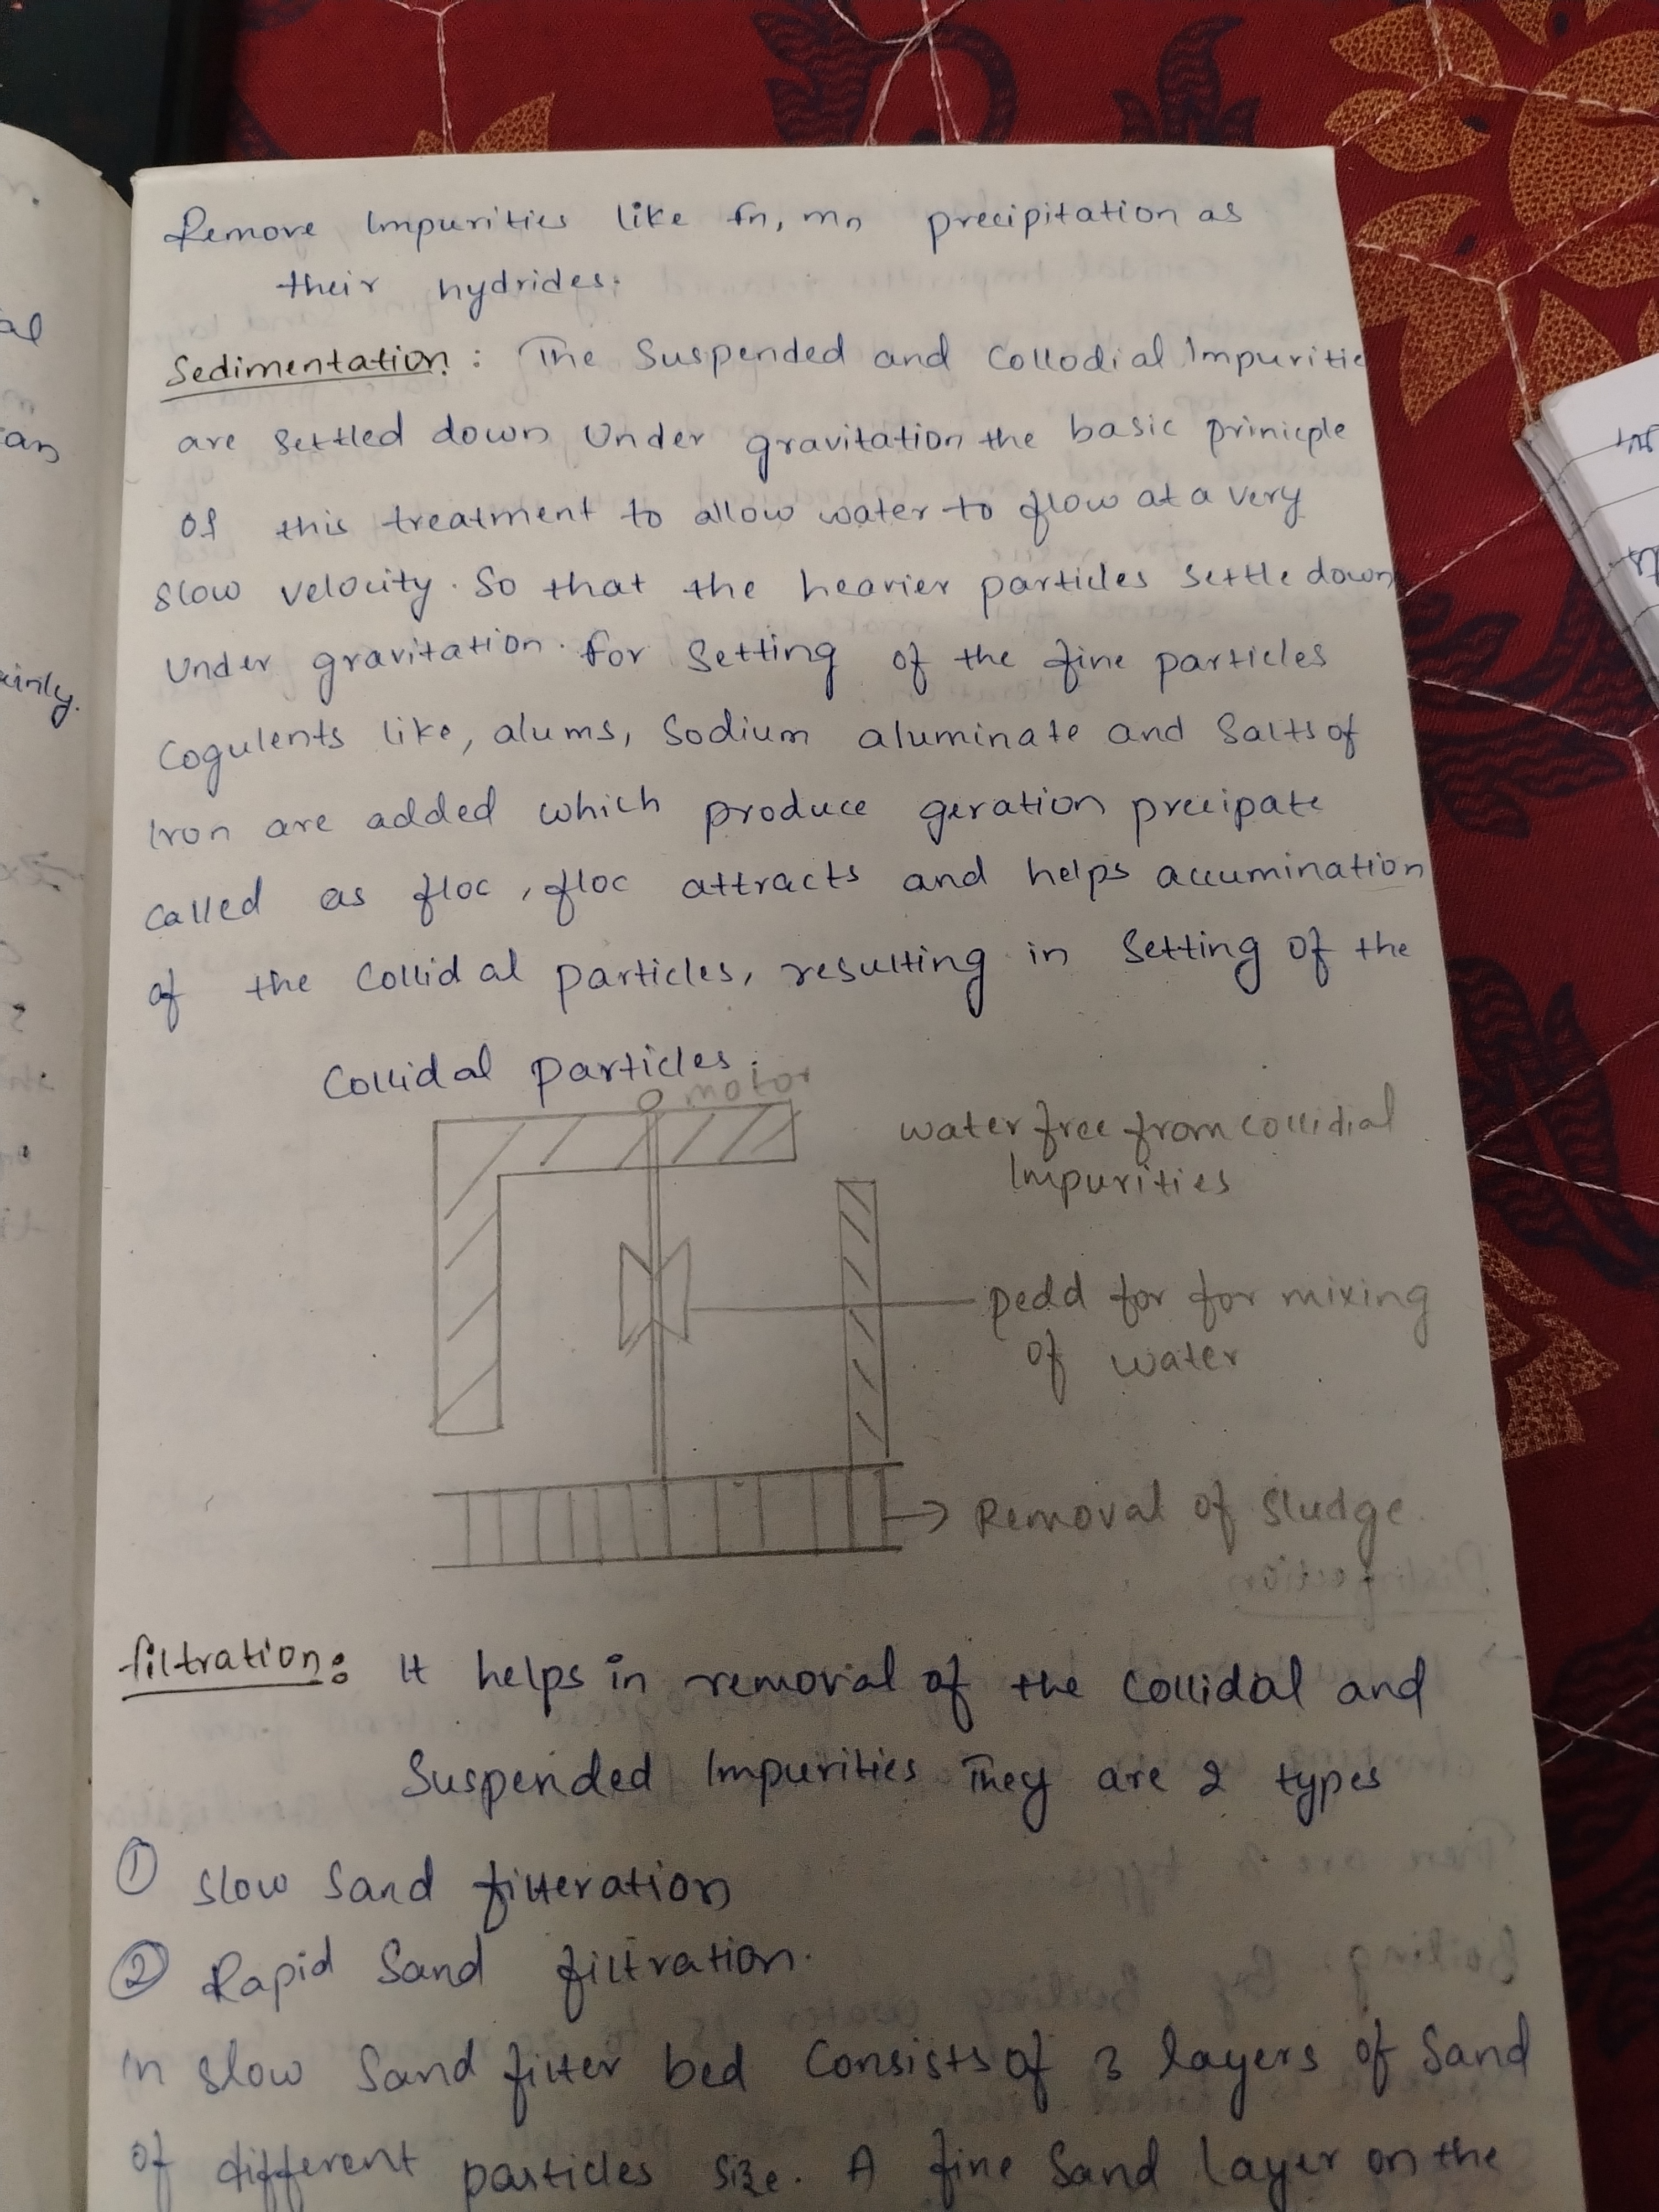 Remove Impurities like fn, mn precipitation as
their hydrides.
Sedimentation: The Suspended and Collodial Impuritie
are settled down Under gravitation the basic prinicple
of this treatment to allow water to flow at a very
slow velocity. So that the heavier particles settle down
Under gravitation. For Setting of the fine particles
Cogulents like, alums, Sodium aluminate and Salts of
Iron are added which produce geration precipate
called as floc, floc attracts and helps accumination
of the Collidal particles, resulting in Setting of the
Collidal particles.
motor
water free from collidial
Impurities
pedd for for mixing
of water
Removal of Sludge.
filtration: It helps in removal of the Collidal and
Suspended Impurities They are 2 types
① Slow Sand filteration
② Rapid Sand filtration.
in slow Sand filter bed Consists of 3 layers of Sand
of different particles size. A fine Sand layer on the